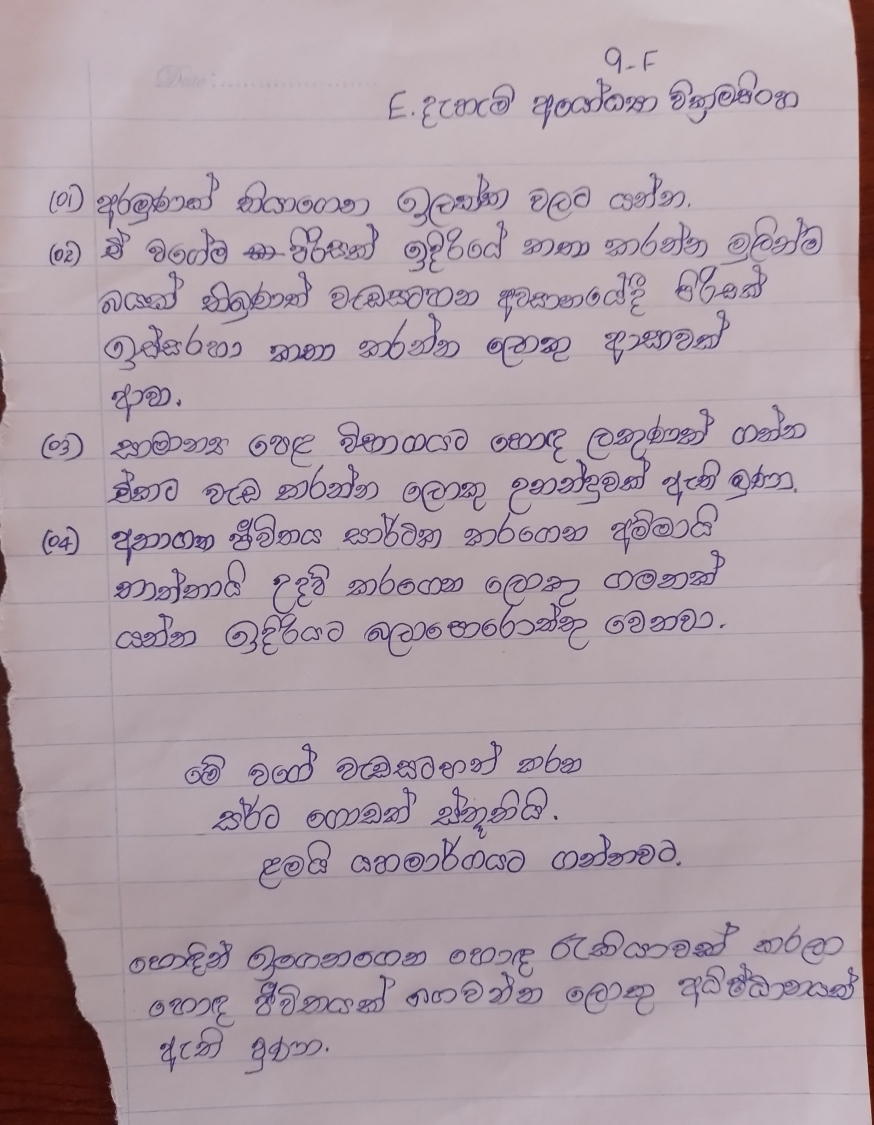 Date:....................
9-F
E. දැහැමි අයෝධ්‍යා වික්‍රමසිංහ
(01) අරමුණක් තියාගෙන ඉලක්ක වලට යන්න.
(02) ඒ වගේම පිරිසක් ඉදිරියේ කතා කරන්න මුලින්ම
බයක් තිබුණත් වැඩසටහන අවසානයේදී පිරිසක්
ඉස්සරහා කතා කරන්න ලොකු ආසාවක්
ආවා.
(03) සාමාන්‍ය පෙළ විභාගයට හොඳ ලකුණක් ගන්න
ඒකට වැඩ කරන්න ලොකු උනන්දුවක් ඇති වුණා.
(04) අනාගත ජීවිතය සාර්ථක කරගෙන අම්මායි
තාත්තායි උදව් කරගෙන ලොකු ගමනක්
යන්න ඉදිරියට බලාපොරොත්තු වෙනවා.
මේ වගේ වැඩසටහන් කරන
සර්ට ගොඩක් ස්තූතියි.
ළමයි යහමාර්ගයට ගත්තාවට.
හොඳින් ඉගෙනගෙන හොඳ රැකියාවක් කරලා
හොඳ ජීවිතයක් ගෙවන්න ලොකු අධිෂ්ඨානයක්
ඇති වුණා.